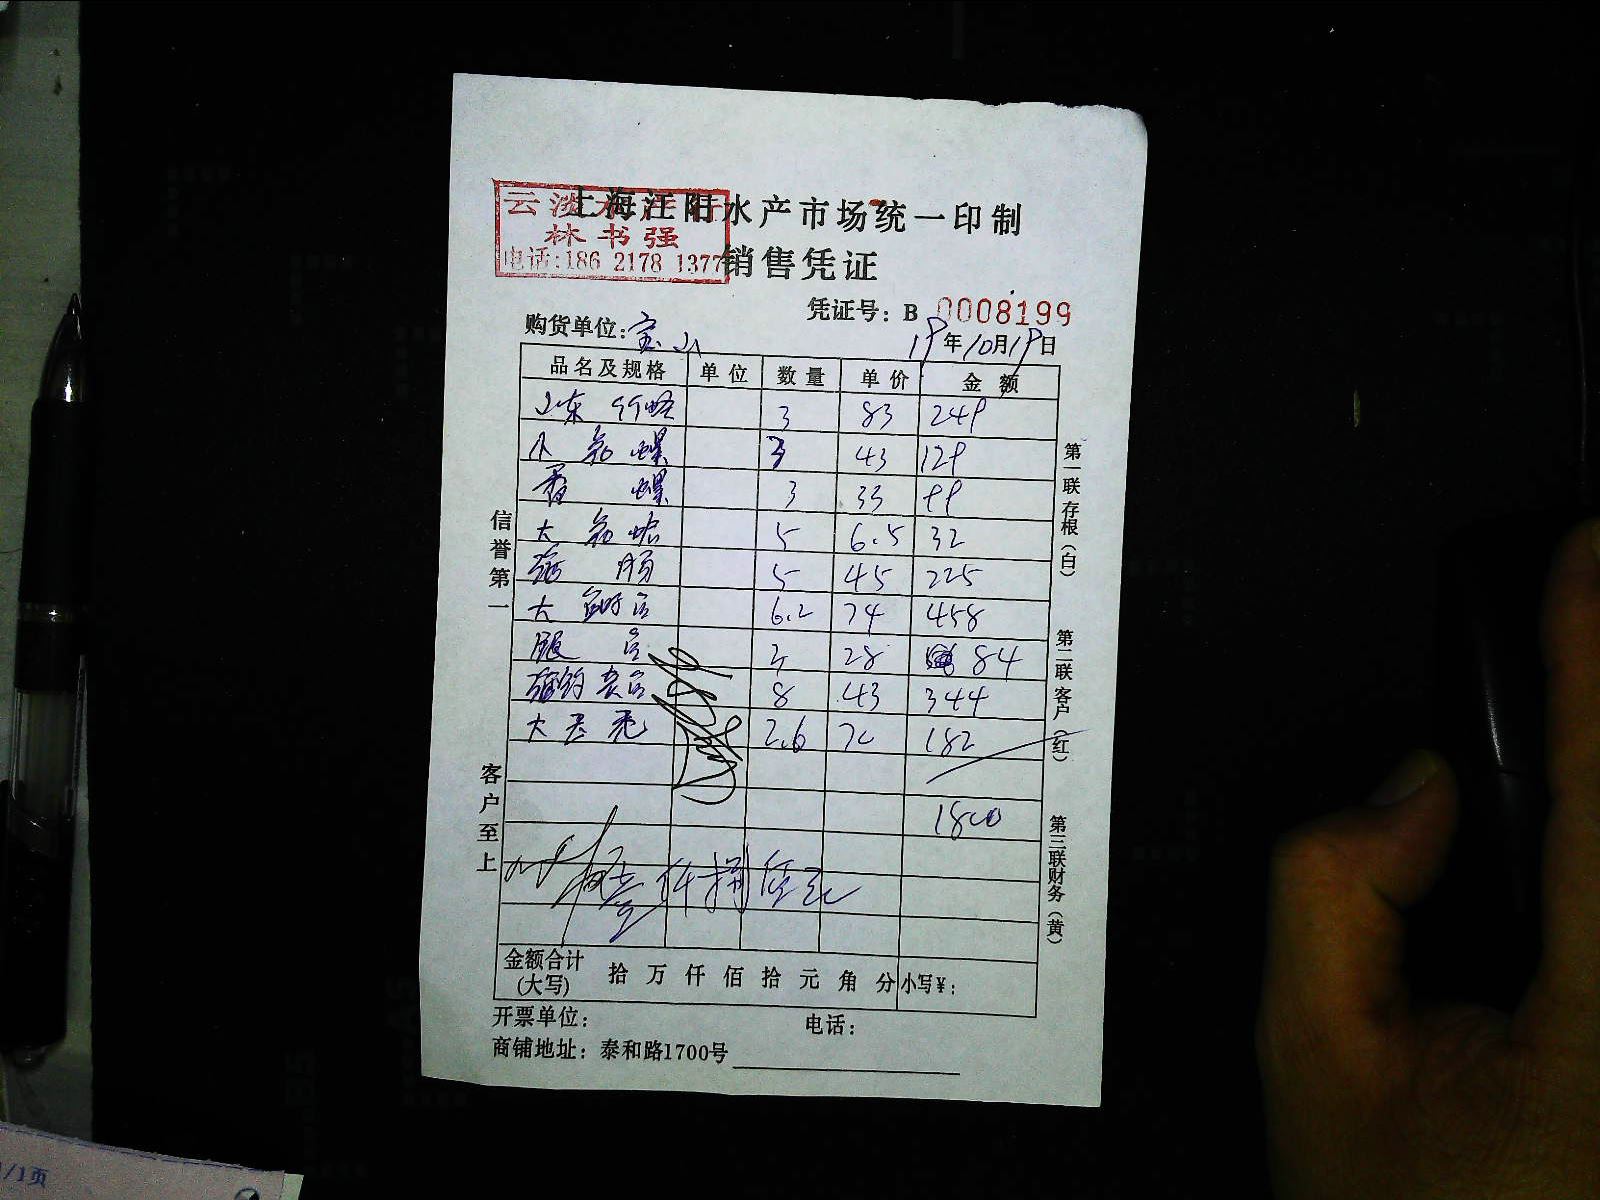 上海江阳水产市场统一印制
林书强
电话:186 2178 1377
销售凭证
凭证号: B 0008199
购货单位: 宝山 19年10月19日
品名及规格 单位 数量 单价 金额
山东 3 83 249
小 螺 3 43 129
香螺 3 33 99
大 5 6.5 32
5 45 225
大 6.2 74 458
3 28 84
8 43 344
大 2.6 70 182
1800
壹仟捌佰元
金额合计(大写) 拾 万 仟 佰 拾 元 角 分 小写¥:
开票单位: 电话:
商铺地址: 泰和路1700号
信誉第一
客户至上
第一联存根(白)
第二联客户(红)
第三联财务(黄)
1/1页